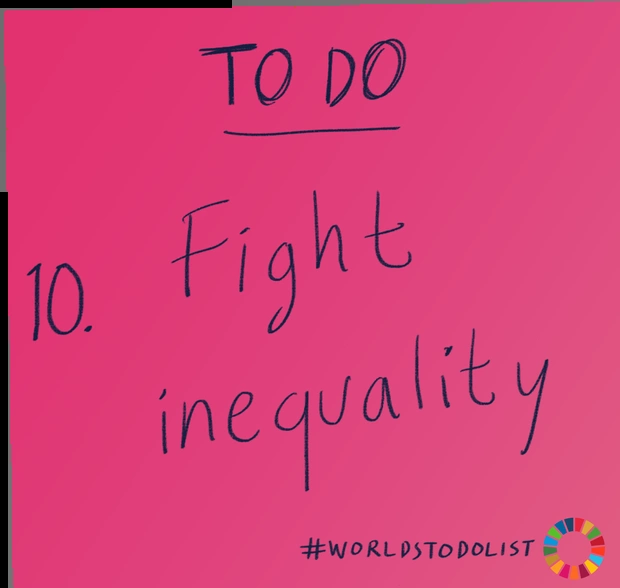 TO DO
10. Fight
inequality
#WORLDSTODOLIST